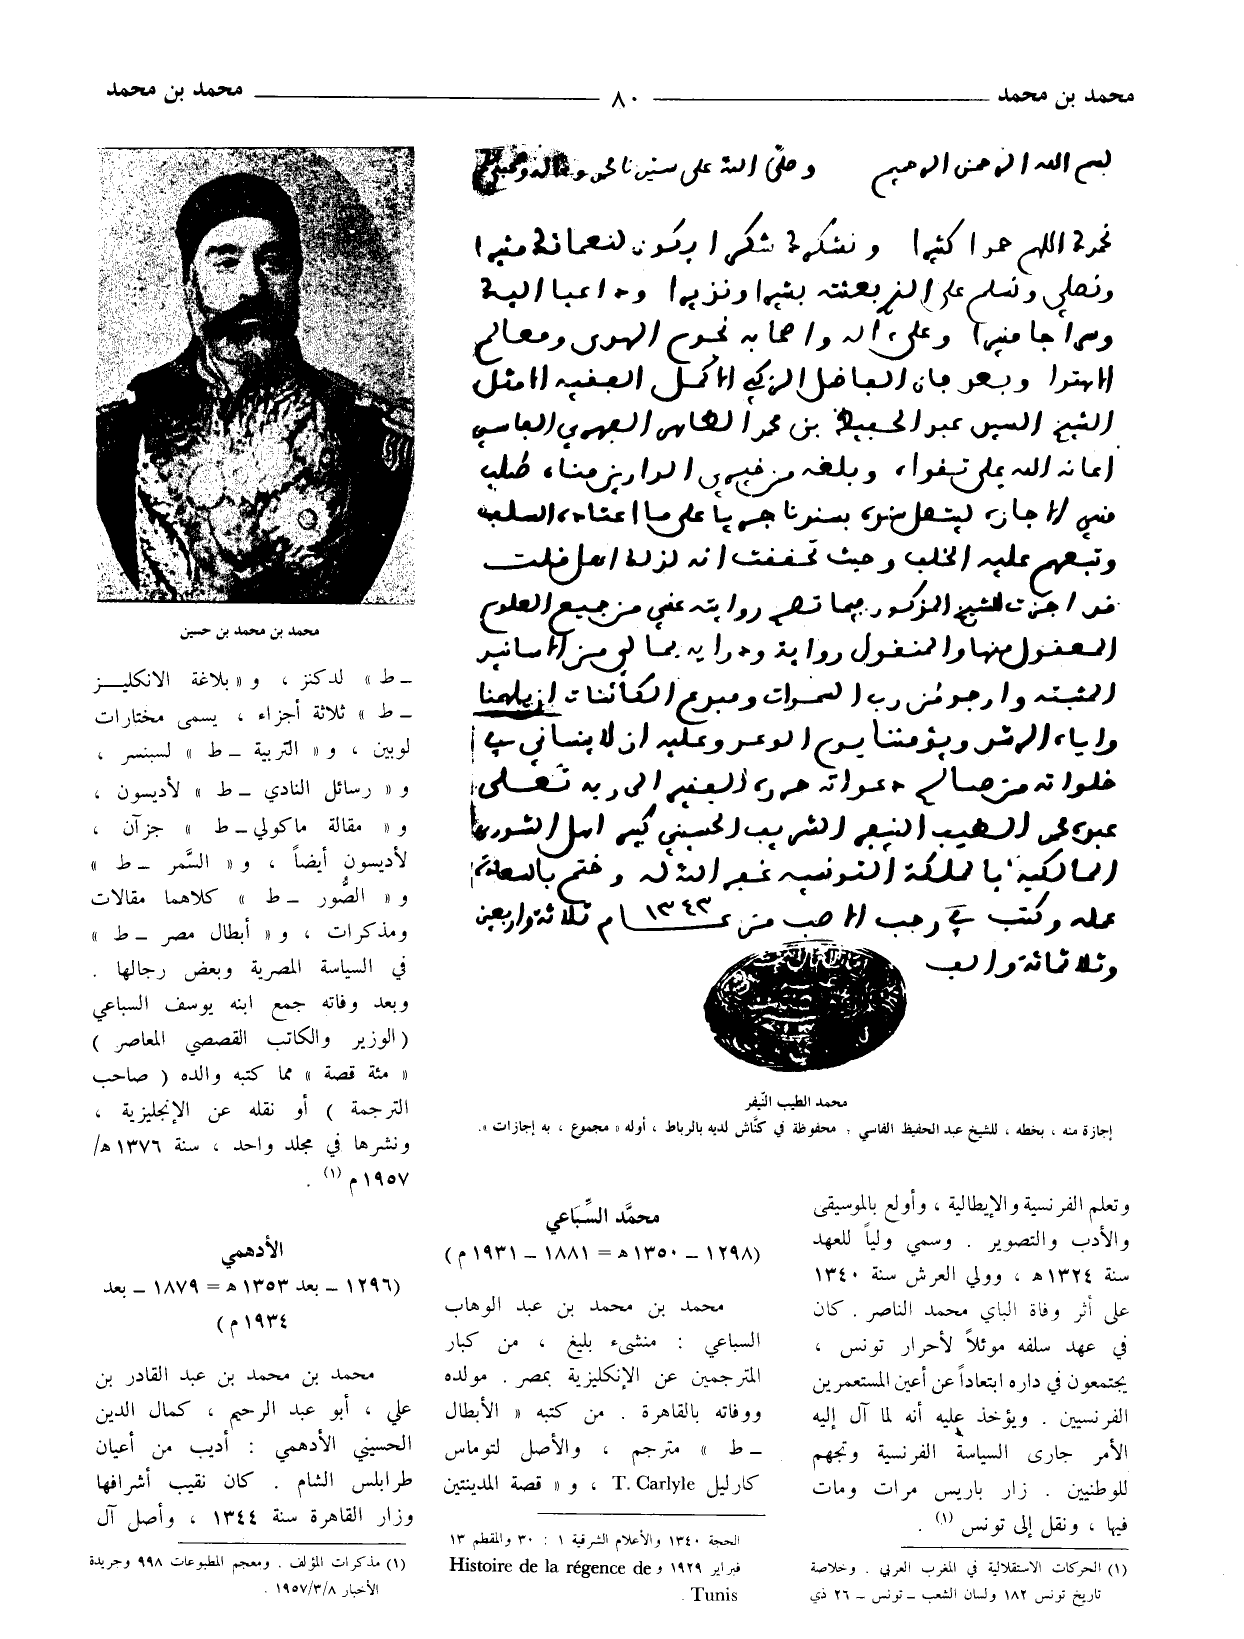 محمد بن محمد ــــ ٨٠ ــــ محمد بن محمد
بسم الله الرحمن الرحيم وصلى الله على سيدنا محمد وآله وصحبه
نحمدك اللهم حمدا كثيرا ونشكرك شكرا يكون لنعمائك
ونصلي ونسلم على الذي بعثته بشيرا ونذيرا وداعيا اليك
وسراجا منيرا وعلى آله واصحابه نجوم الهدى ومعالم
الاهتدا وبعد فان الفاضل الزكي الاكمل الفقيه الامثل
الشيخ السيد عبد الحفيظ بن محمد الطاهر الفهري الفاسي
اعانه الله على تقواه وبلغه من خيري الدارين مناه طلب
مني الاجازة ليتصل بسندنا جريا على ما اعتاده السلف
وتبعهم عليه الخلف وحيث تحققت انه لذلك اهل قلت
قد اجزت للشيخ المذكور بما تصح روايته عني من جميع العلوم
المعقول منها والمنقول رواية ودراية بما لي من الاسانيد
المثبتة وارجو من رب السموات ومبدع الكائنات ان يلهمنا
واياه الرشد ويؤمننا يوم الوعد وعليه ان لا ينساني في
خلواته من صالح دعواته حرره الفقير الى ربه تعالى
عبده محمد الطيب النيفر الشريف الحسيني كبير اهل الشورى
المالكية بالمملكة التونسية غفر الله له وختم بالسعادة
عمله وكتب في رجب الاصب من عام ١٣٤٣ ثلاثة واربعين
وثلاثمائة والف
محمد الطيب النّيفر
إجازة منه ، بخطه ، للشيخ عبد الحفيظ الفاسي ، محفوظة في كنّاش لديه بالرباط ، أوله « مجموع ، به إجازات ».
وتعلم الفرنسية والإيطالية ، وأولع بالموسيقى
والأدب والتصوير . وسمي ولياً للعهد
سنة ١٣٢٤ هـ ، وولي العرش سنة ١٣٤٠
على أثر وفاة الباي محمد الناصر . كان
في عهد سلفه موئلاً لأحرار تونس ،
يجتمعون في داره ابتعاداً عن أعين المستعمرين
الفرنسيين . ويؤخذ عليه أنه لما آل إليه
الأمر جارى السياسة الفرنسية وتجهم
للوطنيين . زار باريس مرات ومات
فيها ، ونقل إلى تونس (١) .
(١) الحركات الاستقلالية في المغرب العربي . وخلاصة
تاريخ تونس ١٨٢ ولسان الشعب ــ تونس ــ ٢٦ ذي
محمَّد السِّبَاعي
(١٢٩٨ ــ ١٣٥٠ هـ = ١٨٨١ ــ ١٩٣١ م)
محمد بن محمد بن عبد الوهاب
السباعي : منشىء بليغ ، من كبار
المترجمين عن الإنكليزية بمصر . مولده
ووفاته بالقاهرة . من كتبه « الأبطال
ــ ط » مترجم ، والأصل لتوماس
كارليل T. Carlyle ، و « قصة المدينتين
الحجة ١٣٤٠ والأعلام الشرقية ١ : ٣٠ والمقطم ١٣
فبراير ١٩٢٩ و Histoire de la régence de
Tunis .
محمد بن محمد بن حسين
ــ ط » لدكنز ، و « بلاغة الانكليز
ــ ط » ثلاثة أجزاء ، يسمى مختارات
لوبين ، و « التربية ــ ط » لسبنسر ،
و « رسائل النادي ــ ط » لأديسون ،
و « مقالة ماكولي ــ ط » جزآن ،
لأديسون أيضاً ، و « السَّمر ــ ط »
و « الصُّور ــ ط » كلاهما مقالات
ومذكرات ، و « أبطال مصر ــ ط »
في السياسة المصرية وبعض رجالها .
وبعد وفاته جمع ابنه يوسف السباعي
( الوزير والكاتب القصصي المعاصر )
« مئة قصة » مما كتبه والده ( صاحب
الترجمة ) أو نقله عن الإنجليزية ،
ونشرها في مجلد واحد ، سنة ١٣٧٦ هـ/
١٩٥٧ م (١) .
الأدهمي
(١٢٩٦ ــ بعد ١٣٥٣ هـ = ١٨٧٩ ــ بعد
١٩٣٤ م)
محمد بن محمد بن عبد القادر بن
علي ، أبو عبد الرحيم ، كمال الدين
الحسيني الأدهمي : أديب من أعيان
طرابلس الشام . كان نقيب أشرافها
وزار القاهرة سنة ١٣٤٤ ، وأصل آل
(١) مذكرات المؤلف . ومعجم المطبوعات ٩٩٨ وجريدة
الأخبار ١٩٥٧/٣/٨ .